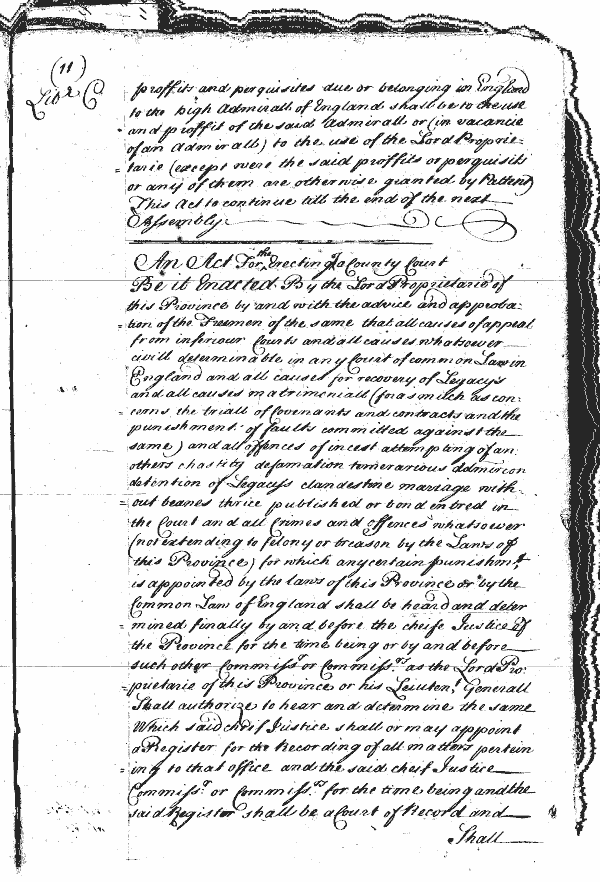 (11)
Libr C
proffits and perquisites due or belonging in England
to the high Admirall of England shall be to the use
and proffit of the said Admirall or (in vacancie
of an Admirall) to the use of the Lord Proprie=
tarie (except were the said proffits or perquisits
or any of them are otherwise granted by Pattent)
This Act to continue till the end of the next
Assembly
An Act For the Erecting of a County Court
Be it Enacted By the Lord Proprietarie of
this Province by and with the advice and approba=
tion of the Freemen of the same that all causes of appeal
from inferiour Courts and all causes whatsoever
civill determinable in any Court of common Law in
England and all causes for recovery of Legacys
and all causes matrimoniall (forasmuch as con=
cerns the triall of Covenants and contracts and the
punishment of faults committed against the
same) and all offences of incest attempting of an=
others chastity defamation temerarious admircon
detention of Legacys clandestine mariage with=
out beanes thrice published or bond entred in
the Court and all Crimes and offences whatsoever
(not extending to felony or treason by the Laws of
this Province) for which any certain punishmt
is appointed by the laws of this Province or by the
Common Law of England shall be heard and deter
mined finally by and before the cheife Justice of
the Province for the time being or by and before
such other Commissr or Commissrs as the Lord Pro=
prietarie of this Province or his Lieutent Generall
Shall authorize to hear and determine the same
Which said cheif Justice shall or may appoint
a Register for the Recording of all matters pertein
ing to that office and the said cheif Justice
Commissr or Commissrs for the time being and the
said Register shall be a Court of Record and
Shall